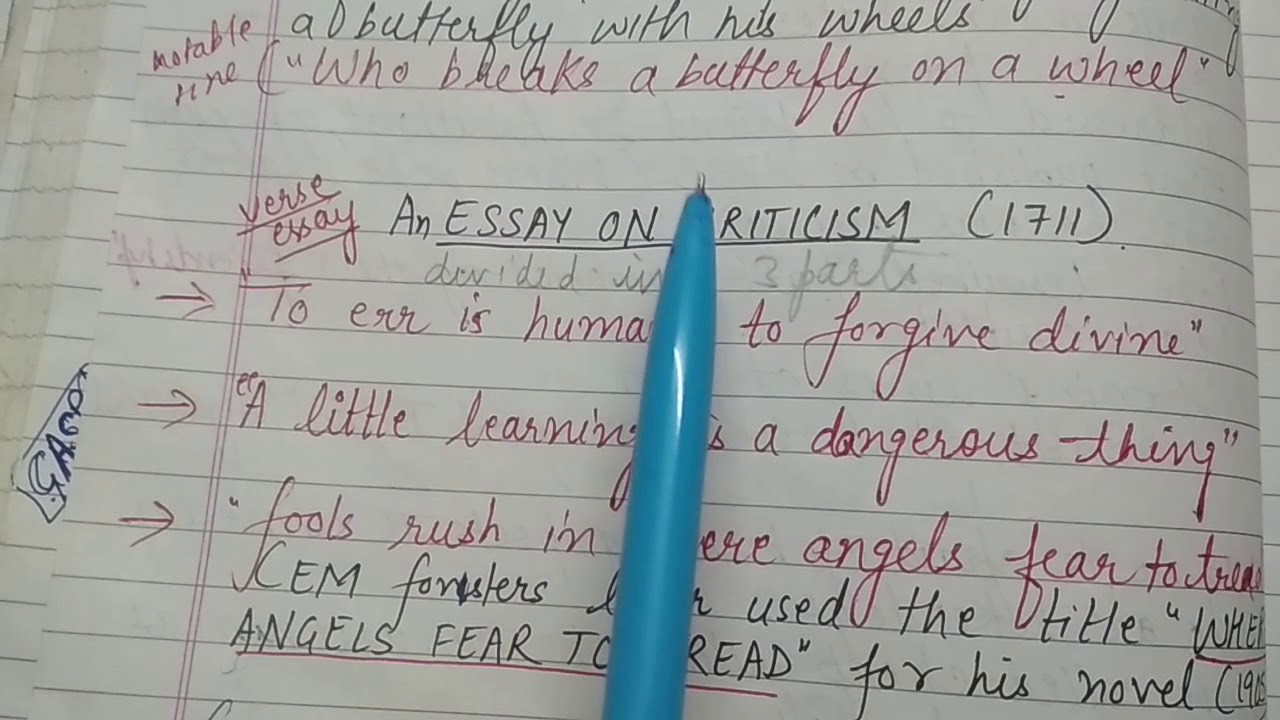 a butterfly with his wheels
notable line
"Who breaks a butterfly on a wheel"
verse essay
An ESSAY ON RITICISM (1711).
divided in 3 parts
→ "To err is huma to forgive divine"
→ "A little learning is a dangerous thing"
→ "fools rush in ere angels fear to trea
EM forsters used the title "WHE
ANGELS FEAR TO READ" for his novel (19